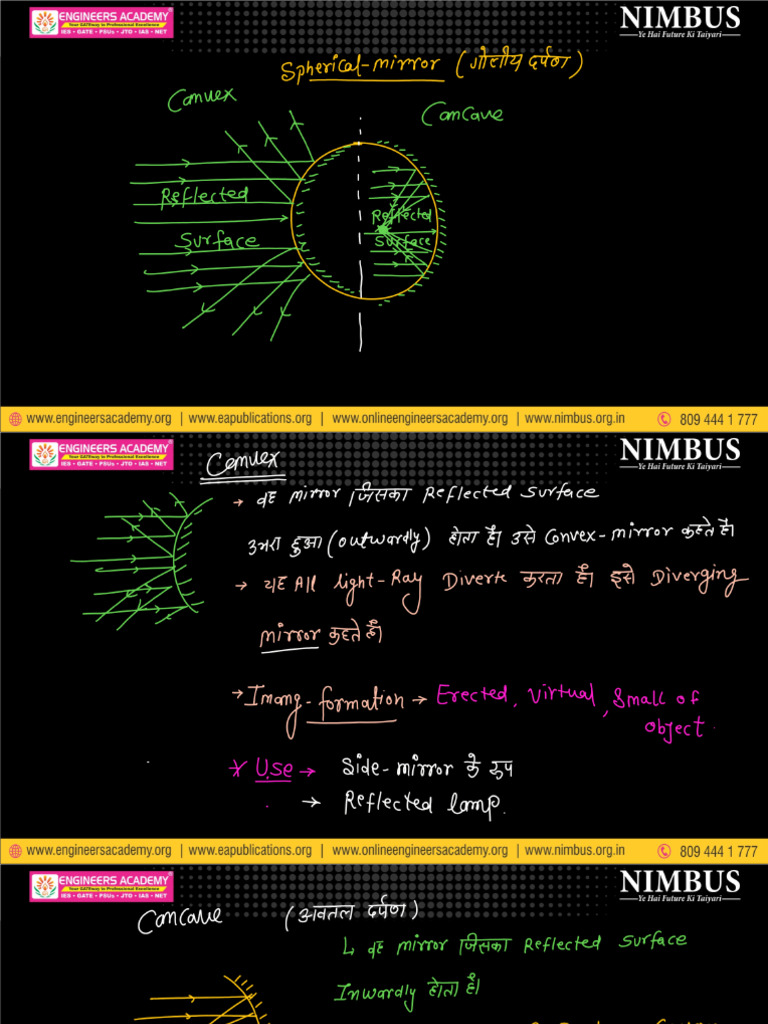 ENGINEERS ACADEMY
Your GATEway to Professional Excellence
IES • GATE • PSUs • JTO • IAS • NET
NIMBUS
Ye Hai Future Ki Taiyari
Spherical-mirror (गोलीय दर्पण)
Convex
Concave
Reflected
Surface
Reflected
Surface
www.engineersacademy.org | www.eapublications.org | www.onlineengineersacademy.org | www.nimbus.org.in 809 444 1 777
ENGINEERS ACADEMY
Your GATEway to Professional Excellence
IES • GATE • PSUs • JTO • IAS • NET
NIMBUS
Ye Hai Future Ki Taiyari
Convex
→ वह mirror जिसका Reflected Surface
उभरा हुआ (outwardly) होता है। उसे Convex-mirror कहते है।
→ यह All light-Ray Diverte करता है। इसे Diverging
mirror कहते है।
→ Imang-formation → Erected, Virtual, Small of
object.
* Use → Side-mirror के रूप
→ Reflected lamp.
www.engineersacademy.org | www.eapublications.org | www.onlineengineersacademy.org | www.nimbus.org.in 809 444 1 777
ENGINEERS ACADEMY
Your GATEway to Professional Excellence
IES • GATE • PSUs • JTO • IAS • NET
NIMBUS
Ye Hai Future Ki Taiyari
Concave (अवतल दर्पण)
↳ वह mirror जिसका Reflected Surface
Inwardly होता है।